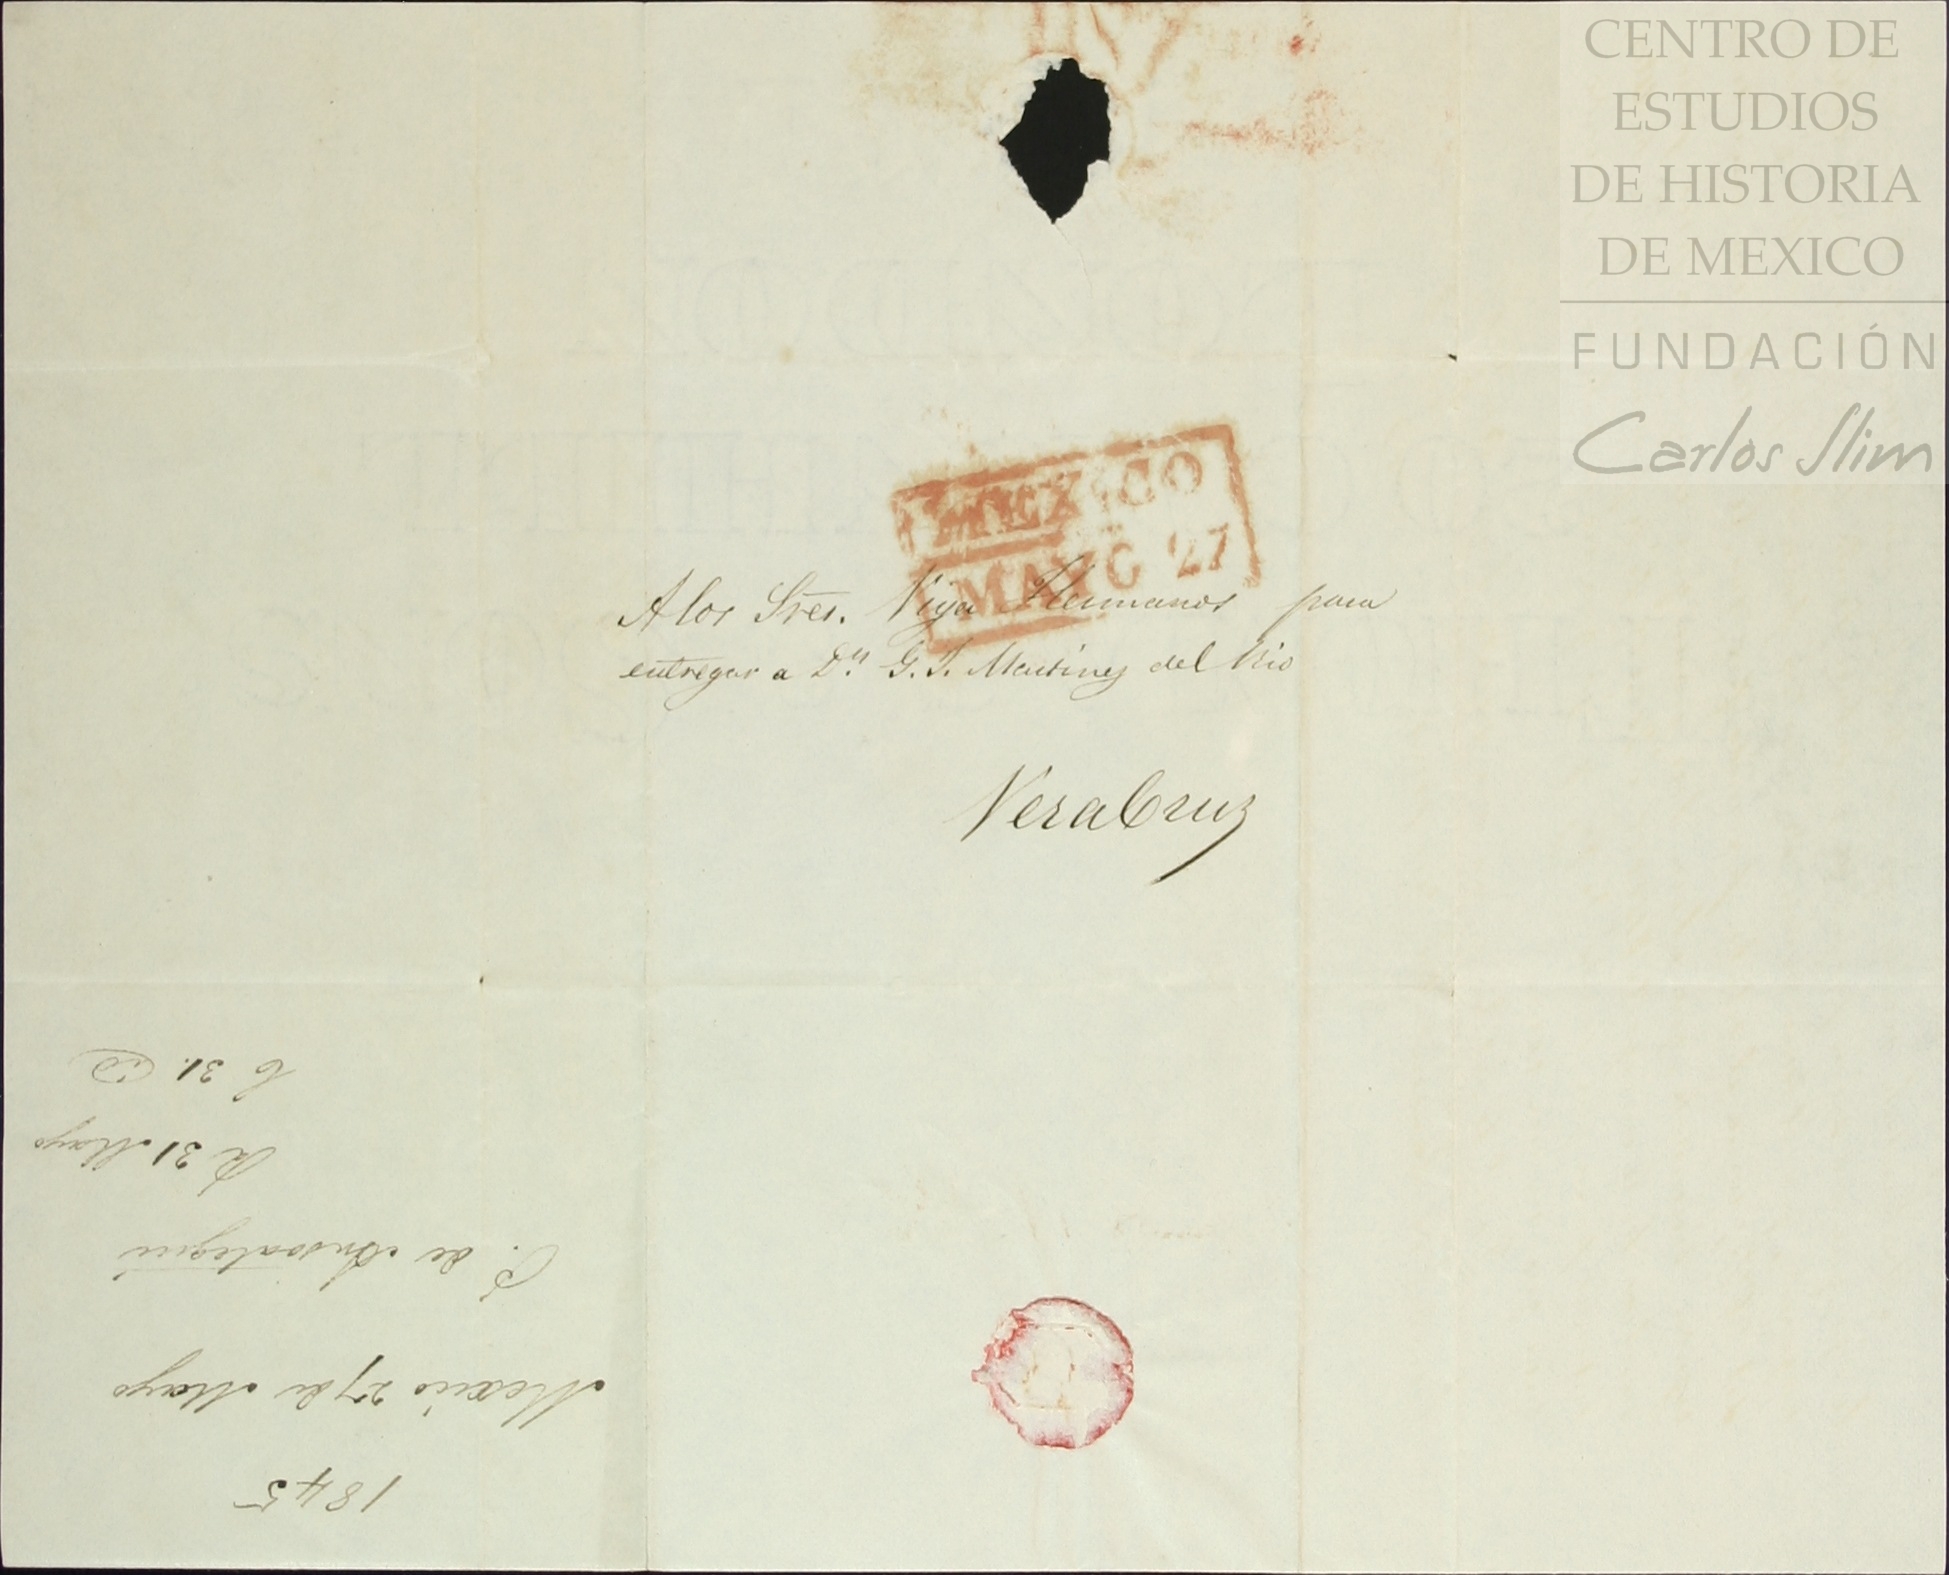 CENTRO DE
ESTUDIOS
DE HISTORIA
DE MEXICO
FUNDACIÓN
Carlos Slim
MEXICO
MAYO 27
A los Sres. Viya Hermanos para
entregar a Dn. G. J. Martinez del Rio
VeraCruz
1845
Mexico 27 de Mayo
P. de Ansoategui
R 31 Mayo
C 31.